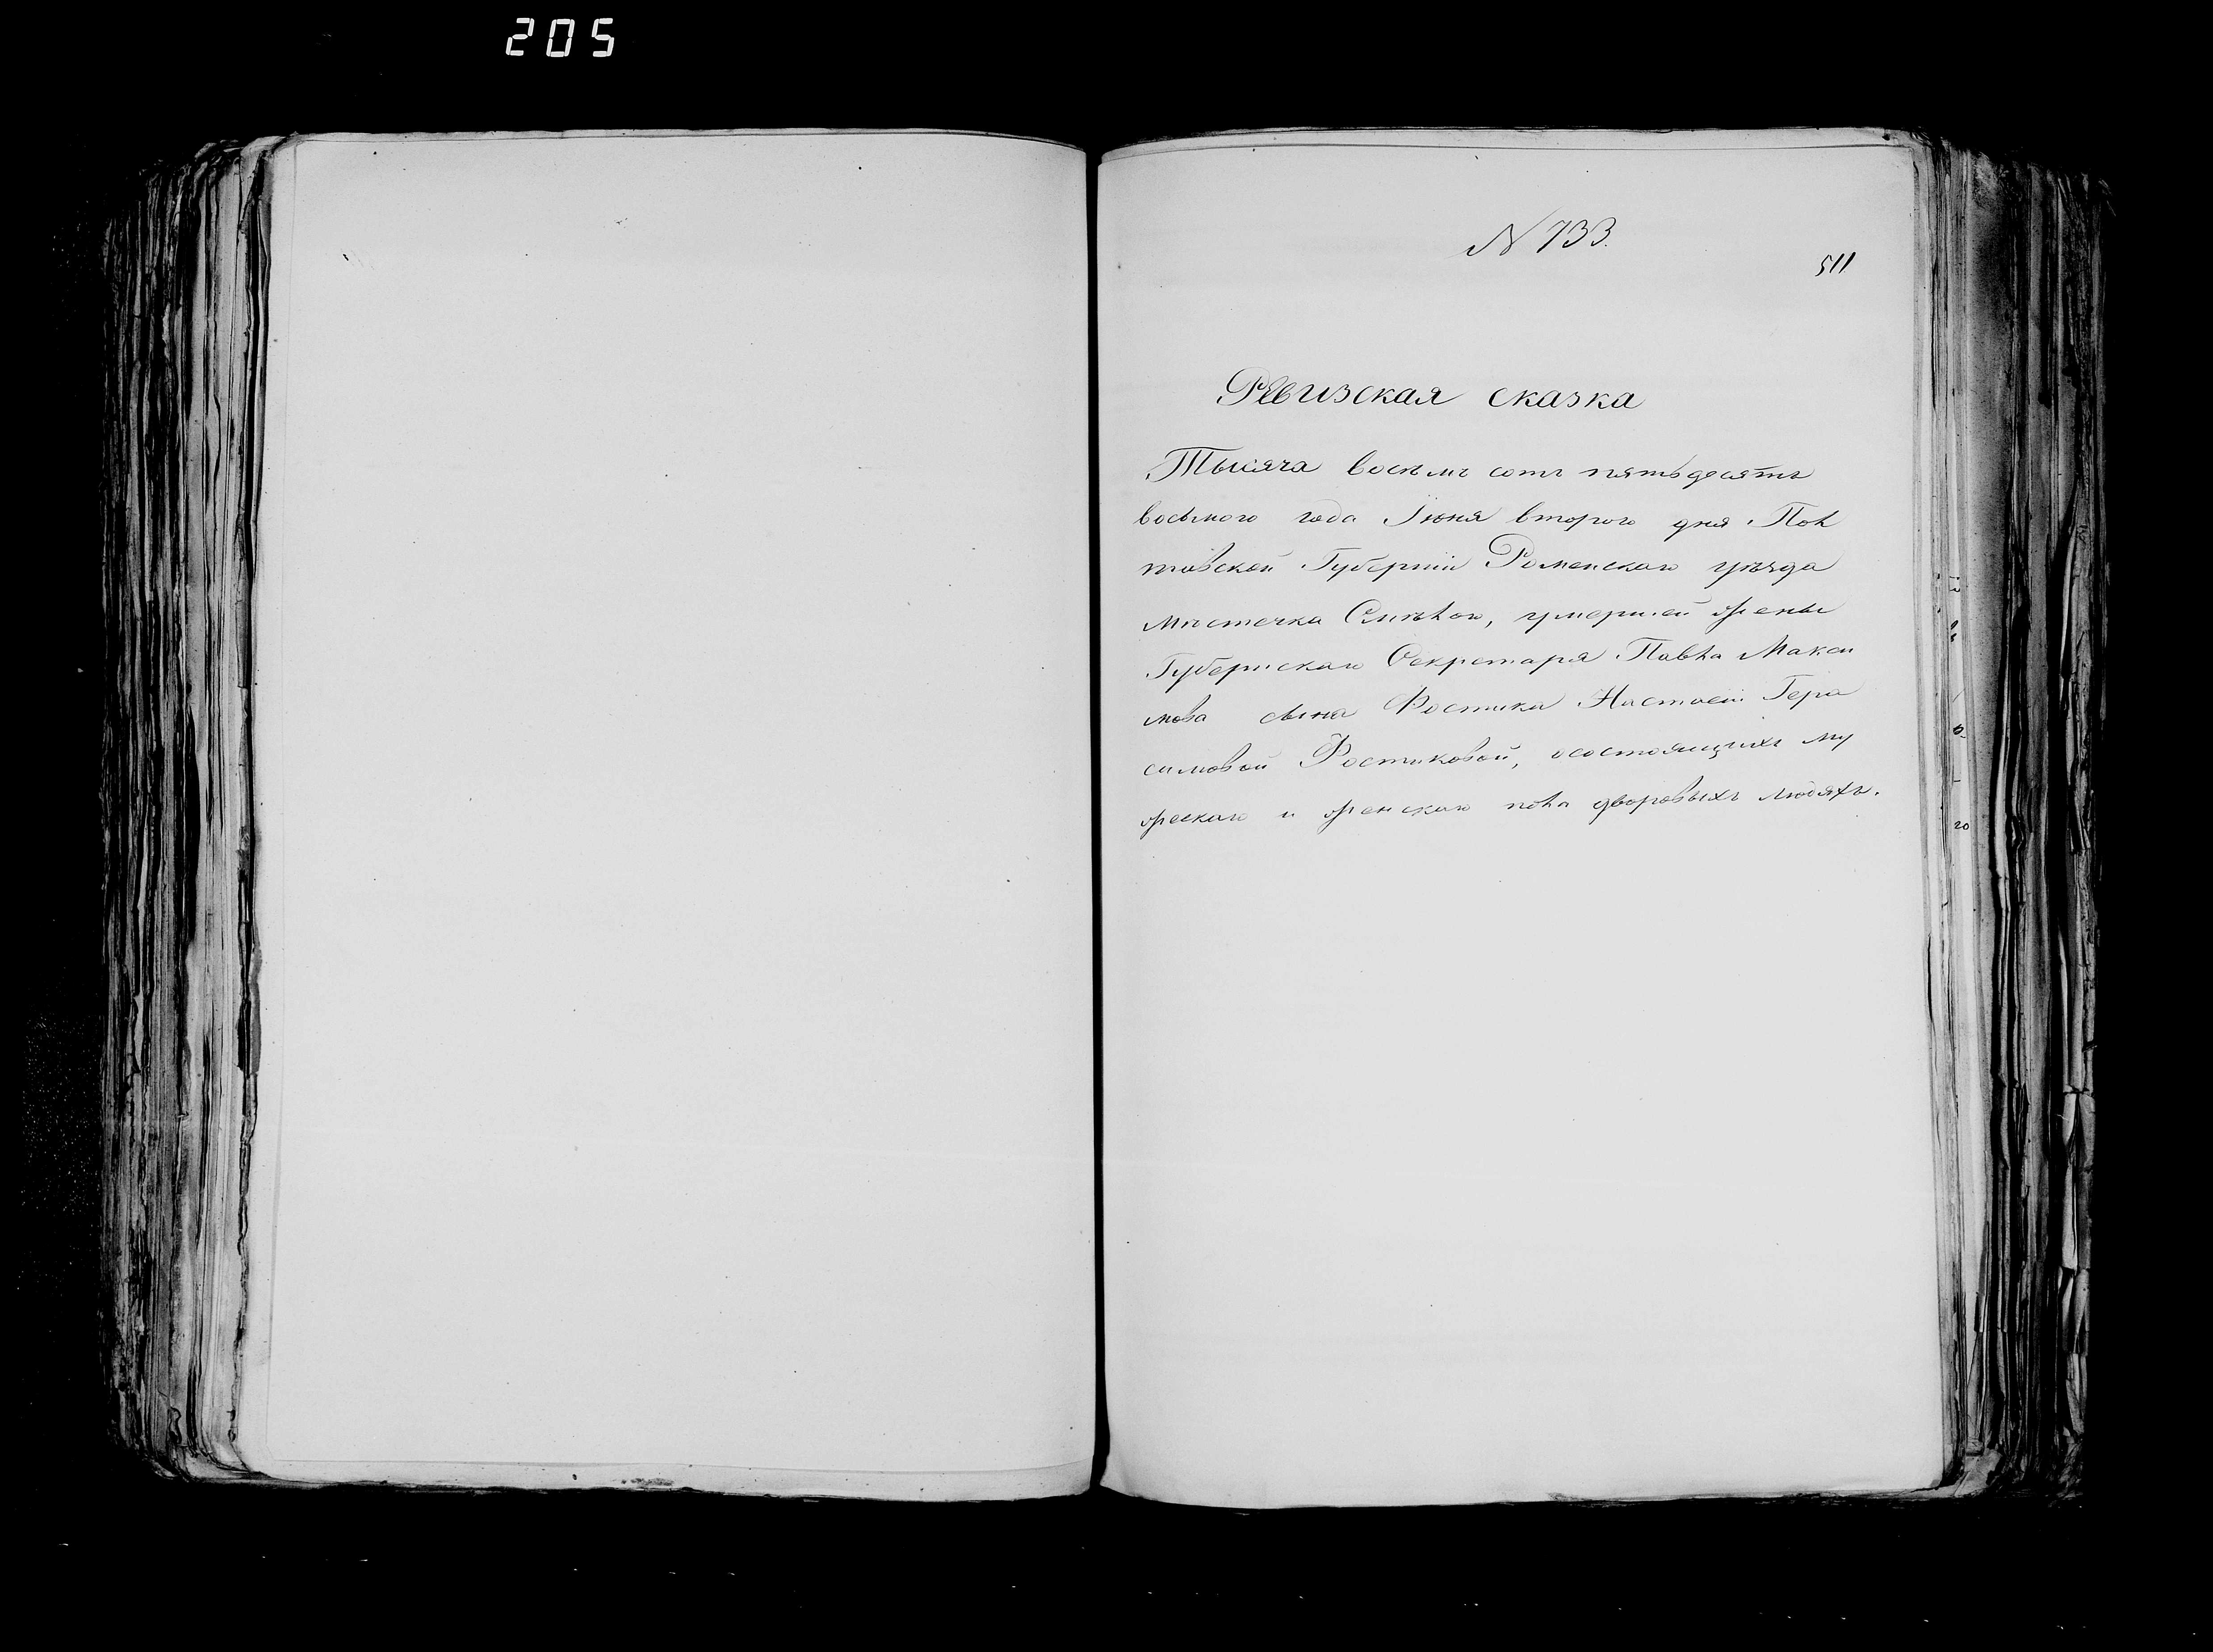 205
N 733.
511
Ревизская сказка
Тысяча восемь сотъ пятьдесятъ
восьмого года Іюня второго дня. Пол
тавской Губерніи Роменскаго уѣзда
мѣстечка Смѣлою, умершей жены
Губернскаго Секретаря Павла Макси
мова сына Фостика Настасіи Гера
симовой Фостиковой, осостоящихъ му
жескаго и женскаго пола дворовыхъ людяхъ.
20